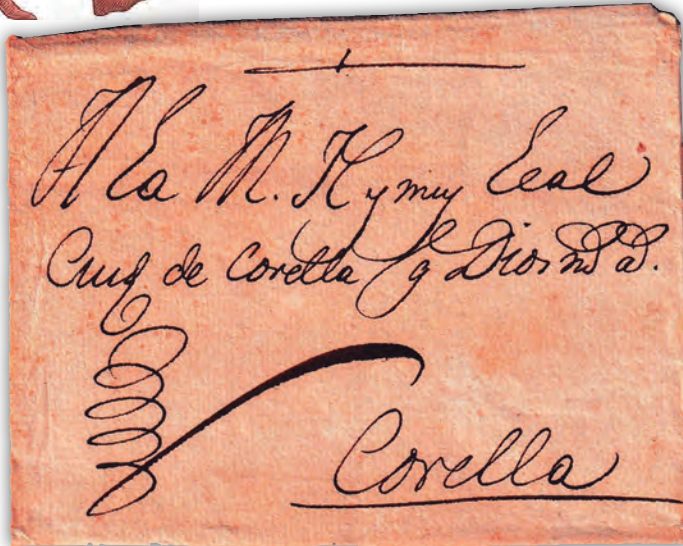 A La M. N. y muy Leal
Ciud de Corella g Dios ms as.
Corella